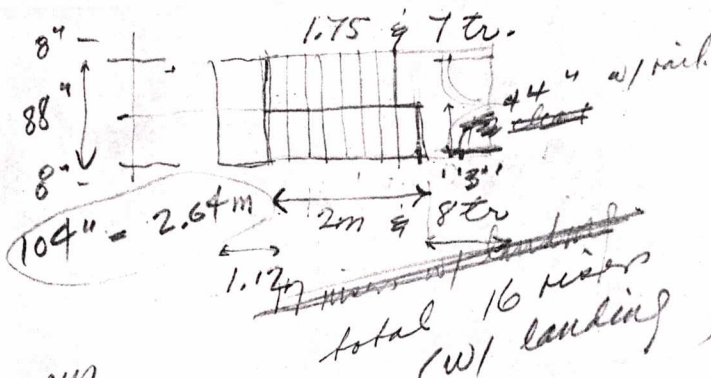 1.75 & 7 tr.
8"
88"
8"
44" w/ rail
3"
104" = 2.64m
2m & 8 tr
1.12
total 16 risers
(w/ landing
up